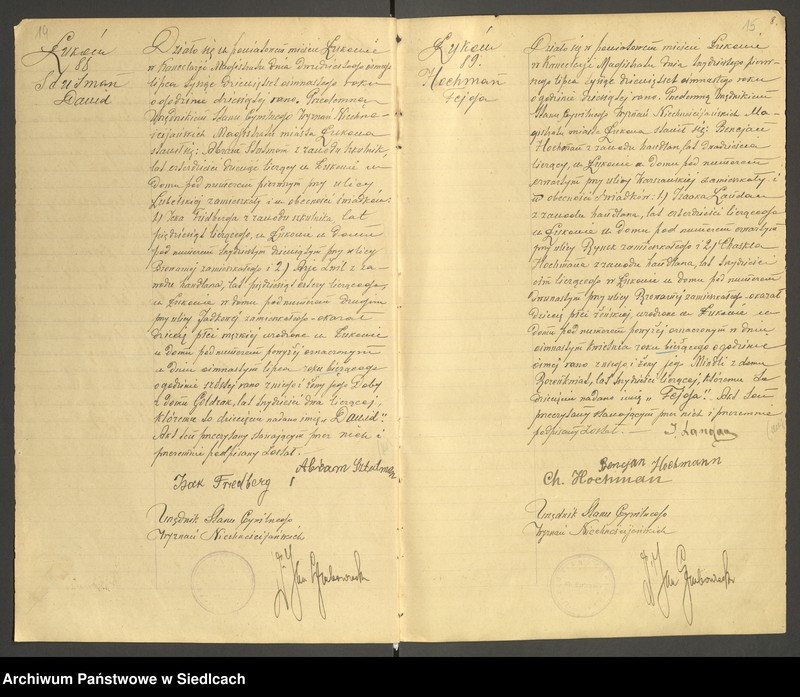 14
Łuków
88
Sztulman
Dawid
Działo się w powiatowem mieście Łukowie
w Kancelarji Magistratu dnia dwudziestego ósmego
lipca tysiąc dziewięćset osiemnastego roku
o godzinie dziesiątej rano. Przedemną
Urzędnikiem Stanu Cywilnego Wyznań Niechrze-
ścijańskich Magistratu miasta Łukowa
stawił się: Abram Sztulman z zawodu
lat czterdzieści dziewięć liczący w Łukowie w
domu pod numerem pierwszym przy ulicy
Lubelskiej zamieszkały i w obecności świadków:
1) Icka Fridberga z zawodu lat
pięćdziesiąt liczącego, w Łukowie w domu
pod numerem dziesiątym przy ulicy
Browarnej zamieszkałego i 2) z za-
wodu handlarza, lat pięćdziesiąt cztery liczącego,
w Łukowie w domu pod numerem drugim
przy ulicy zamieszkałego - okazał
dziecię płci męskiej urodzone w Łukowie
w domu pod numerem powyżej oznaczonym
w dniu osiemnastym lipca roku bieżącego
o godzinie szóstej rano z niego i żony jego Doby
z domu lat trzydzieści dwa liczącej,
któremu to dziecięciu nadano imię „Dawid".
Akt ten przeczytany stawającym przez nich i
przezemnie podpisany został.
Abram Sztulman
Icek Friedberg
Urzędnik Stanu Cywilnego
Wyznań Niechrześcijańskich
15
8.
Łuków
89.
Hochman
Fejga
Działo się w powiatowem mieście Łukowie
w Kancelarji Magistratu dnia trzydziestego pierw-
szego lipca tysiąc dziewięćset osiemnastego roku
o godzinie dziesiątej rano. Przedemną Urzędnikiem
Stanu Cywilnego Wyznań Niechrześcijańskich Ma-
gistratu miasta Łukowa stawił się: Bencjan
Hochman z zawodu handlarz, lat
liczący, w Łukowie w domu pod numerem
czwartym przy ulicy Warszawskiej zamieszkały i
w obecności świadków: 1) Icaaka Landau
z zawodu handlarza, lat czterdzieści liczącego
w Łukowie w domu pod numerem czwartym
przy ulicy Rynek zamieszkałego i 2) Chaskla
Hochmana z zawodu handlarza, lat trzydzieści
osm liczącego w Łukowie w domu pod numerem
dwunastym przy ulicy Browarnej zamieszkałego okazał
dziecię płci żeńskiej urodzone w Łukowie w
domu pod numerem powyżej oznaczonym w dniu
osiemnastym kwietnia roku bieżącego o godzinie
ósmej rano z niego i żony jego z domu
lat trzydzieści liczącej, któremu to
dziecięciu nadano imię „Fejga". Akt ten
przeczytany stawającym przez nich i przezemnie
podpisany został.
I. Landau
Bencjan Hochmann
Ch. Hochman
Urzędnik Stanu Cywilnego
Wyznań Niechrześcijańskich
Archiwum Państwowe w Siedlcach